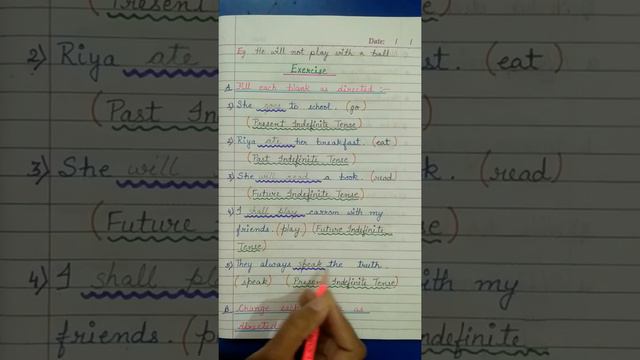 Date: / /
Eg. He will not play with a ball
Exercise
A Fill each blank as directed :-
1) She goes to school. (go)
(Present Indefinite Tense)
2) Riya ate her breakfast. (eat)
(Past Indefinite Tense)
3) She will read a book. (read)
(Future Indefinite Tense)
4) I shall play carrom with my
friends. (play) (Future Indefinite
Tense)
5) They always speak the truth.
(speak) (Present Indefinite Tense)
B Change each as
directed